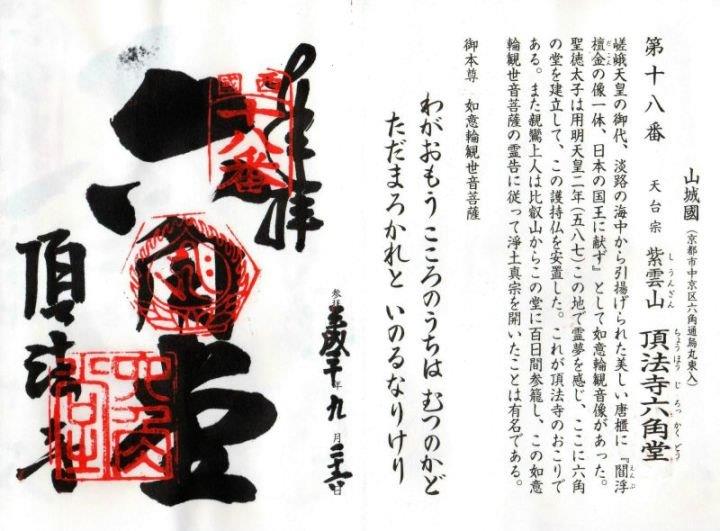 山城國(京都市中京区六角通烏丸東入)
第十八番 天台宗 紫雲山 頂法寺六角堂
しうんざん ちょうほうじ ろっかくどう
嵯峨天皇の御代、淡路の海中から引揚げられた美しい唐櫃に『閻浮
檀金の像一体、日本の国王に献ず』として如意輪観音像があった。
聖徳太子は用明天皇二年(五八七)この地で霊夢を感じ、ここに六角
の堂を建立して、この護持仏を安置した。これが頂法寺のおこりで
ある。また親鸞上人は比叡山からこの堂に百日間参籠し、この如意
輪観世音菩薩の霊告に従って浄土真宗を開いたことは有名である。
御本尊 如意輪観世音菩薩
わがおもう こころのうちは むつのかど
ただまろかれと いのるなりけり
参拝 平成 年 九月 日
奉拝
西國
十八番
六角堂
頂法寺